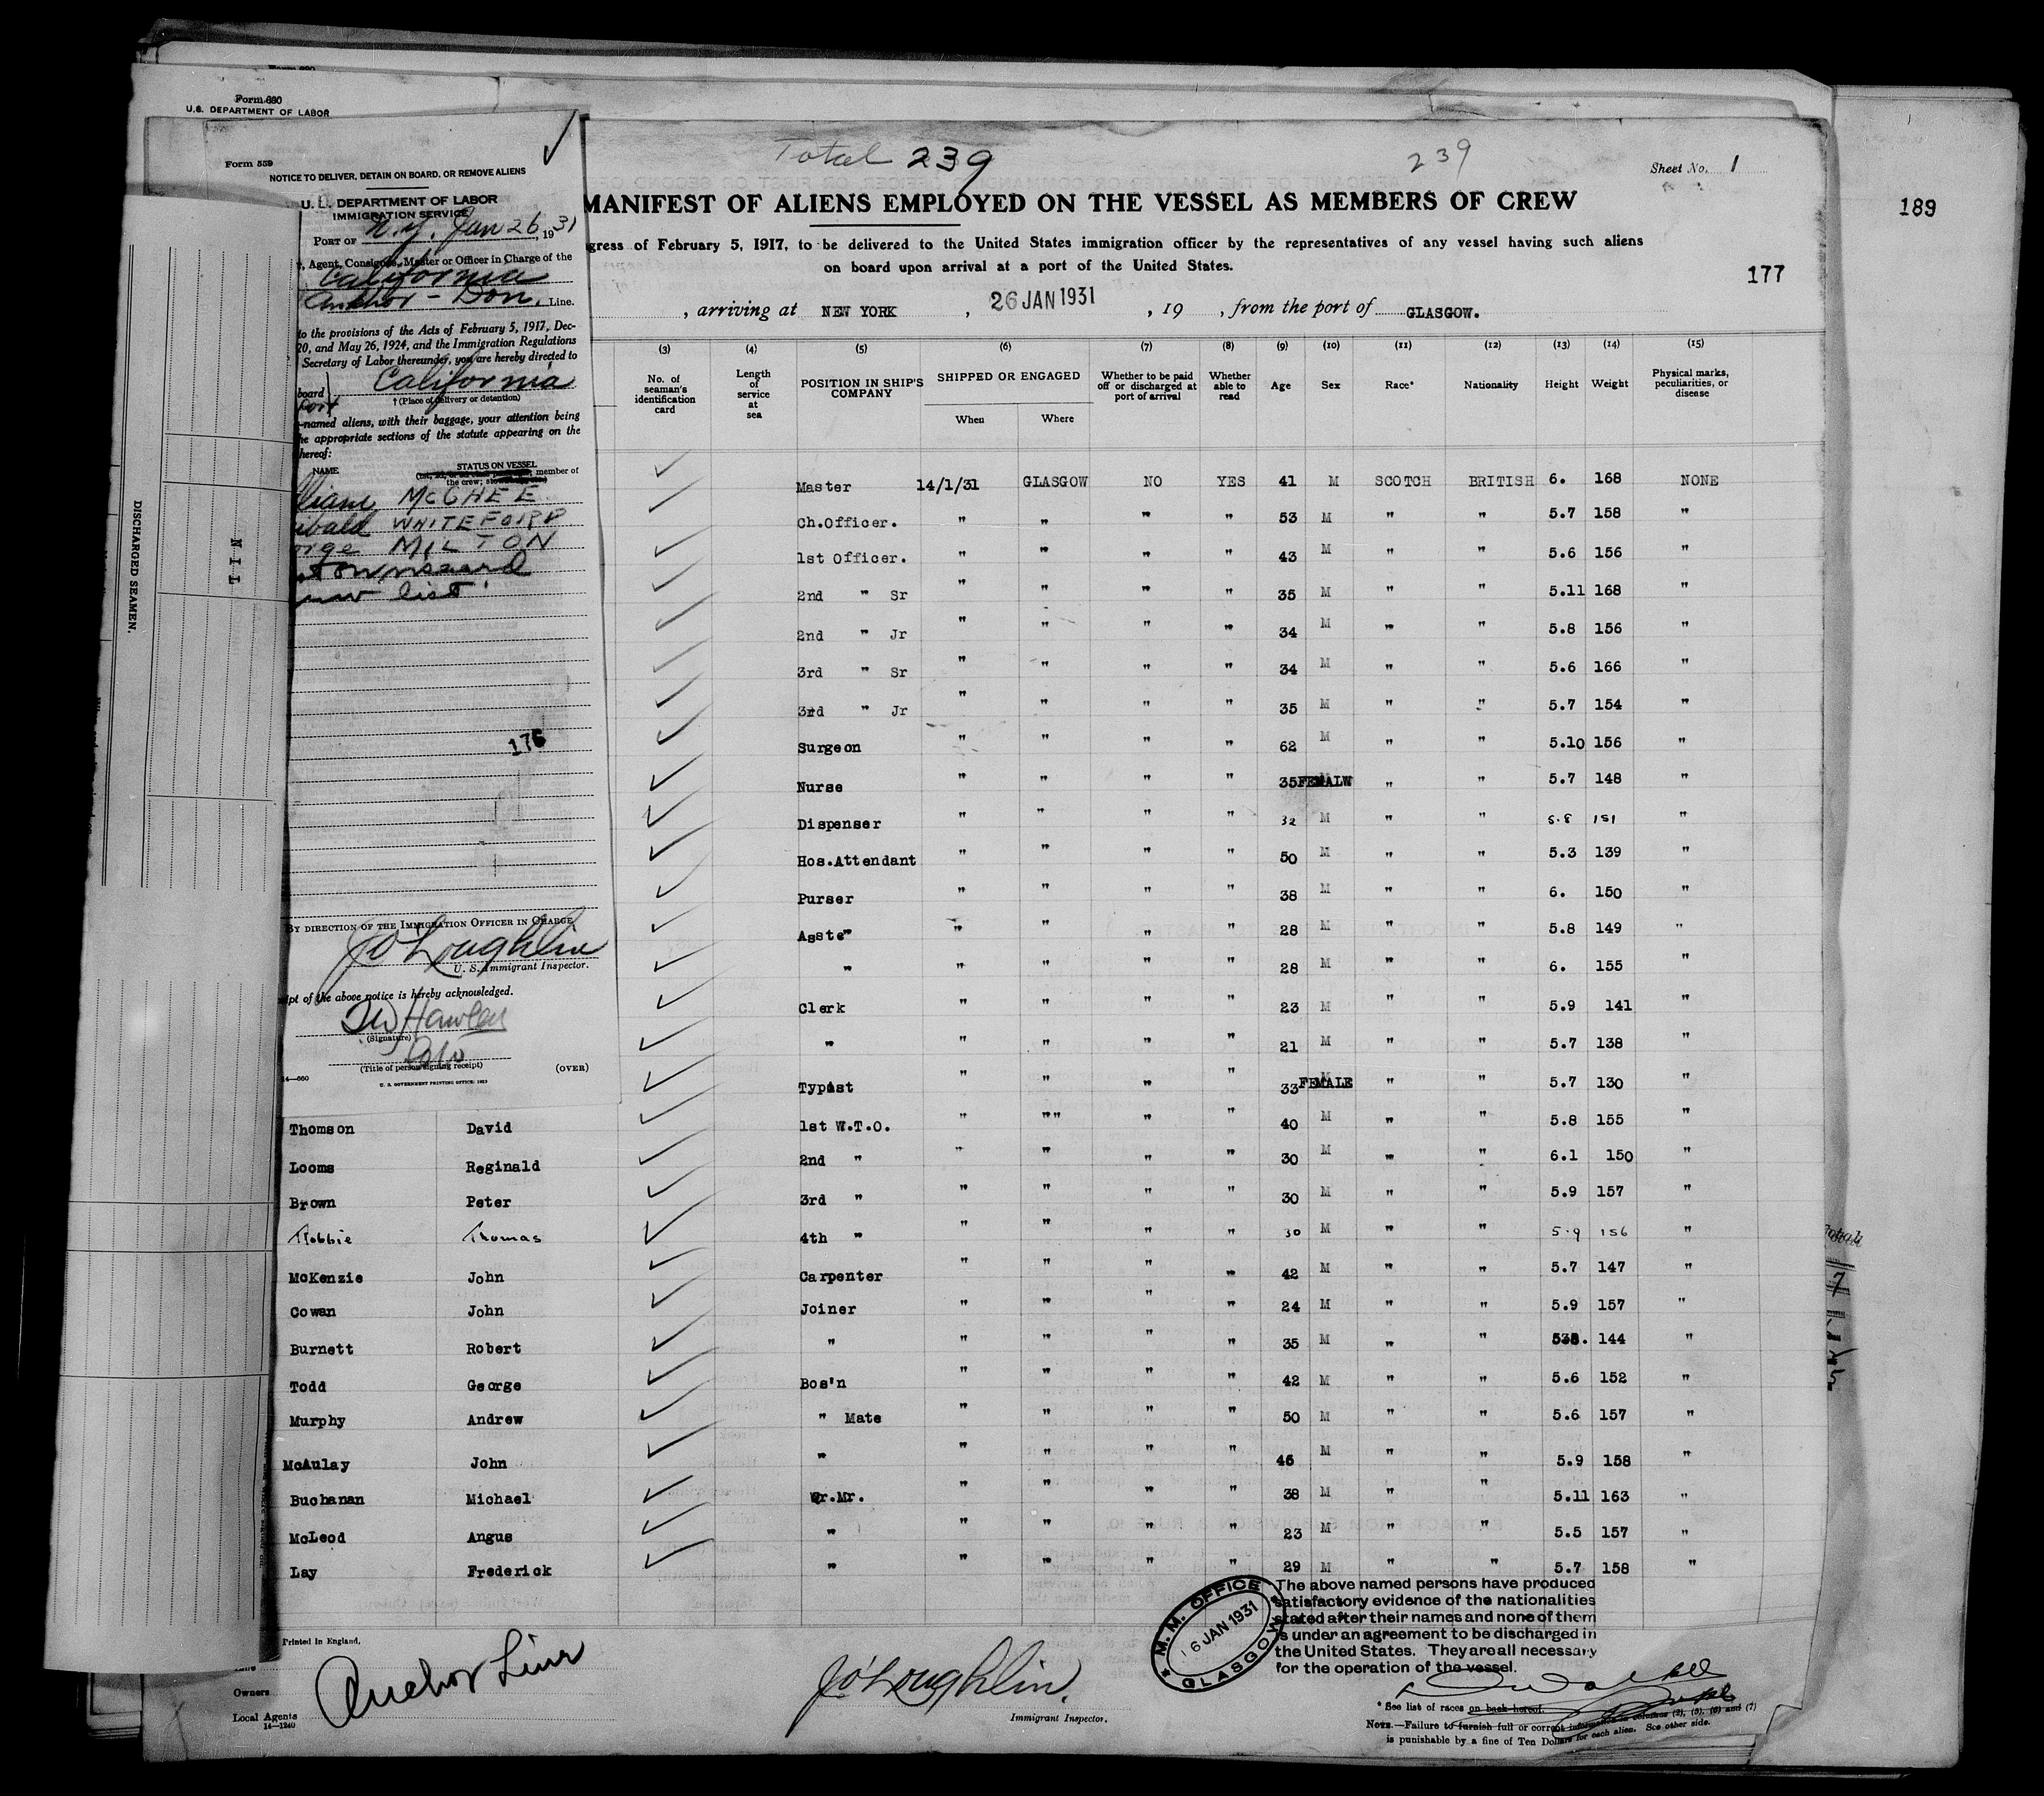 Form 680
U.S. DEPARTMENT OF LABOR
Form 559
NOTICE TO DELIVER, DETAIN ON BOARD, OR REMOVE ALIENS
U.S. DEPARTMENT OF LABOR
IMMIGRATION SERVICE
PORT OF N.Y. Jan 26, 1931
, Agent, Consignee, Master or Officer in Charge of the
California
Anchor - Don. Line.
to the provisions of the Acts of February 5, 1917, Dec-
20, and May 26, 1924, and the Immigration Regulations
Secretary of Labor thereunder, you are hereby directed to
board California
port † (Place of delivery or detention)
-named aliens, with their baggage, your attention being
he appropriate sections of the statute appearing on the
hereof:
NAME STATUS ON VESSEL
member of
the crew;
lliam McGHEE
ibald WHITEFORD
orge MILTON
list
176
BY DIRECTION OF THE IMMIGRATION OFFICER IN CHARGE
J O'Loughlin
U. S. Immigrant Inspector.
ipt of the above notice is hereby acknowledged.
(Signature)
(Title of person signing receipt) (OVER)
14—660 U. S. GOVERNMENT PRINTING OFFICE: 1923
DISCHARGED SEAMEN.
NIL
Total 239 239 Sheet No. 1
MANIFEST OF ALIENS EMPLOYED ON THE VESSEL AS MEMBERS OF CREW
189
gress of February 5, 1917, to be delivered to the United States immigration officer by the representatives of any vessel having such aliens
on board upon arrival at a port of the United States.
177
, arriving at NEW YORK , 26 JAN 1931 , 19 , from the port of GLASGOW.
(3) (4) (5) (6) (7) (8) (9) (10) (11) (12) (13) (14) (15)
No. of seaman's identification card Length of service at sea POSITION IN SHIP'S COMPANY SHIPPED OR ENGAGED When Where Whether to be paid off or discharged at port of arrival Whether able to read Age Sex Race* Nationality Height Weight Physical marks, peculiarities, or disease
Master 14/1/31 GLASGOW NO YES 41 M SCOTCH BRITISH 6. 168 NONE
Ch.Officer. " " " " 53 M " " 5.7 158 "
1st Officer. " " " " 43 M " " 5.6 156 "
2nd " Sr " " " " 35 M " " 5.11 168 "
2nd " Jr " " " " 34 M " " 5.8 156 "
3rd " Sr " " " " 34 M " " 5.6 166 "
3rd " Jr " " " " 35 M " " 5.7 154 "
Surgeon " " " " 62 M " " 5.10 156 "
Nurse " " " " 35 FEMALW " " 5.7 148 "
Dispenser " " " " 32 M " " 5.8 151 "
Hos.Attendant " " " " 50 M " " 5.3 139 "
Purser " " " " 38 M " " 6. 150 "
Asste" " " " " 28 M " " 5.8 149 "
" " " " " 28 M " " 6. 155 "
Clerk " " " " 23 M " " 5.9 141 "
" " " " " 21 M " " 5.7 138 "
Typist " " " " 33 FEMALE " " 5.7 130 "
Thomson David 1st W.T.O. " "" " " 40 M " " 5.8 155 "
Looms Reginald 2nd " " " " " 30 M " " 6.1 150 "
Brown Peter 3rd " " " " " 30 M " " 5.9 157 "
Robbie Thomas 4th " " " " " 30 M " " 5.9 156 "
McKenzie John Carpenter " " " " 42 M " " 5.7 147 "
Cowan John Joiner " " " " 24 M " " 5.9 157 "
Burnett Robert " " " " " 35 M " " 144 "
Todd George Bos'n " " " " 42 M " " 5.6 152 "
Murphy Andrew " Mate " " " " 50 M " " 5.6 157 "
McAulay John " " " " " 46 M " " 5.9 158 "
Buchanan Michael Qr.Mr. " " " " 38 M " " 5.11 163 "
McLeod Angus " " " " " 23 M " " 5.5 157 "
Lay Frederick " " " " " 29 M " " 5.7 158 "
M. M. OFFICE
16 JAN 1931
GLASGOW
The above named persons have produced
satisfactory evidence of the nationalities
stated after their names and none of them
is under an agreement to be discharged in
the United States. They are all necessary
for the operation of the vessel.
Printed in England.
Anchor Line
Owners
Local Agents
14—1240
J O'Loughlin.
Immigrant Inspector.
* See list of races on back hereof.
NOTE.—Failure to furnish full or correct information in columns (2), (5), (6) and (7)
is punishable by a fine of Ten Dollars for each alien. See other side.